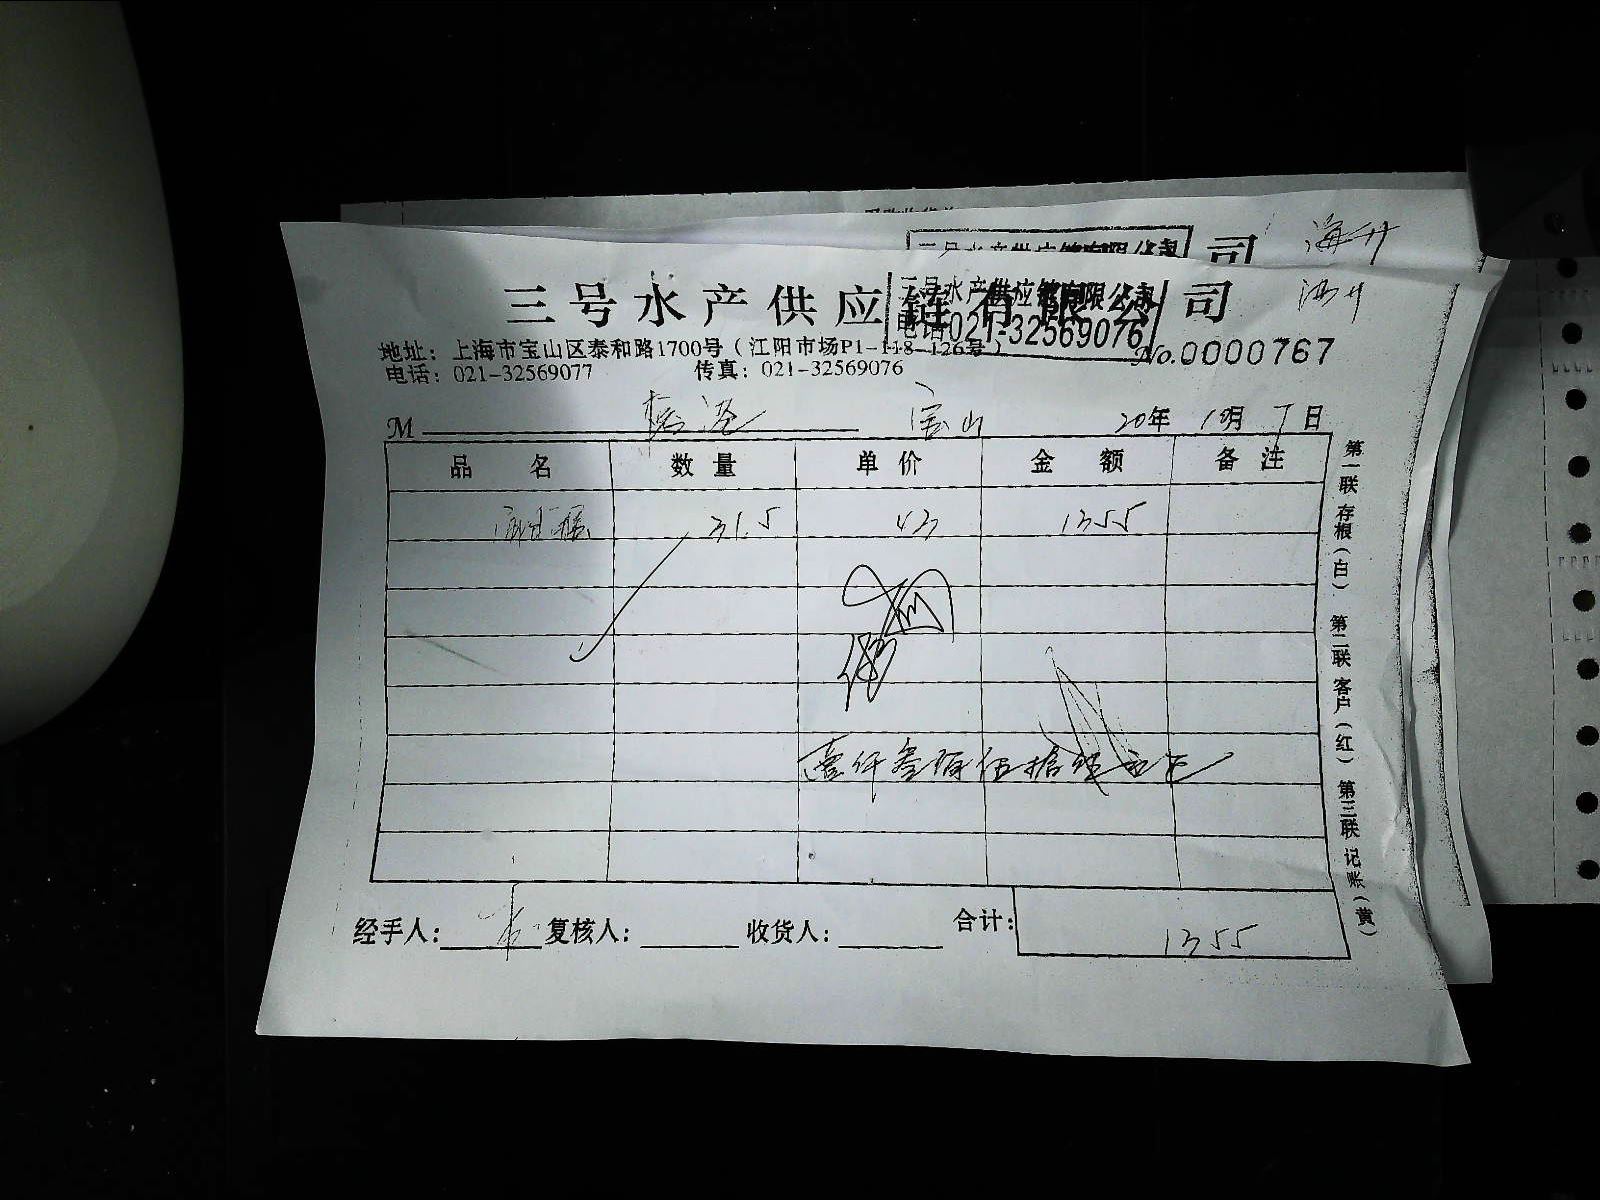 司
海升
三号水产供应链有限公司
三号水产供应链有限公司
电话021-32569076
海升
地址：上海市宝山区泰和路1700号（江阳市场P1-118-126号）
No.0000767
电话：021-32569077 传真：021-32569076
M 宝山 20年 10月 7日
品名 数量 单价 金额 备注
31.5 43 1355
壹仟叁佰伍拾伍元正
经手人： 复核人： 收货人： 合计： 1355
第一联 存根（白） 第二联 客户（红） 第三联 记账（黄）